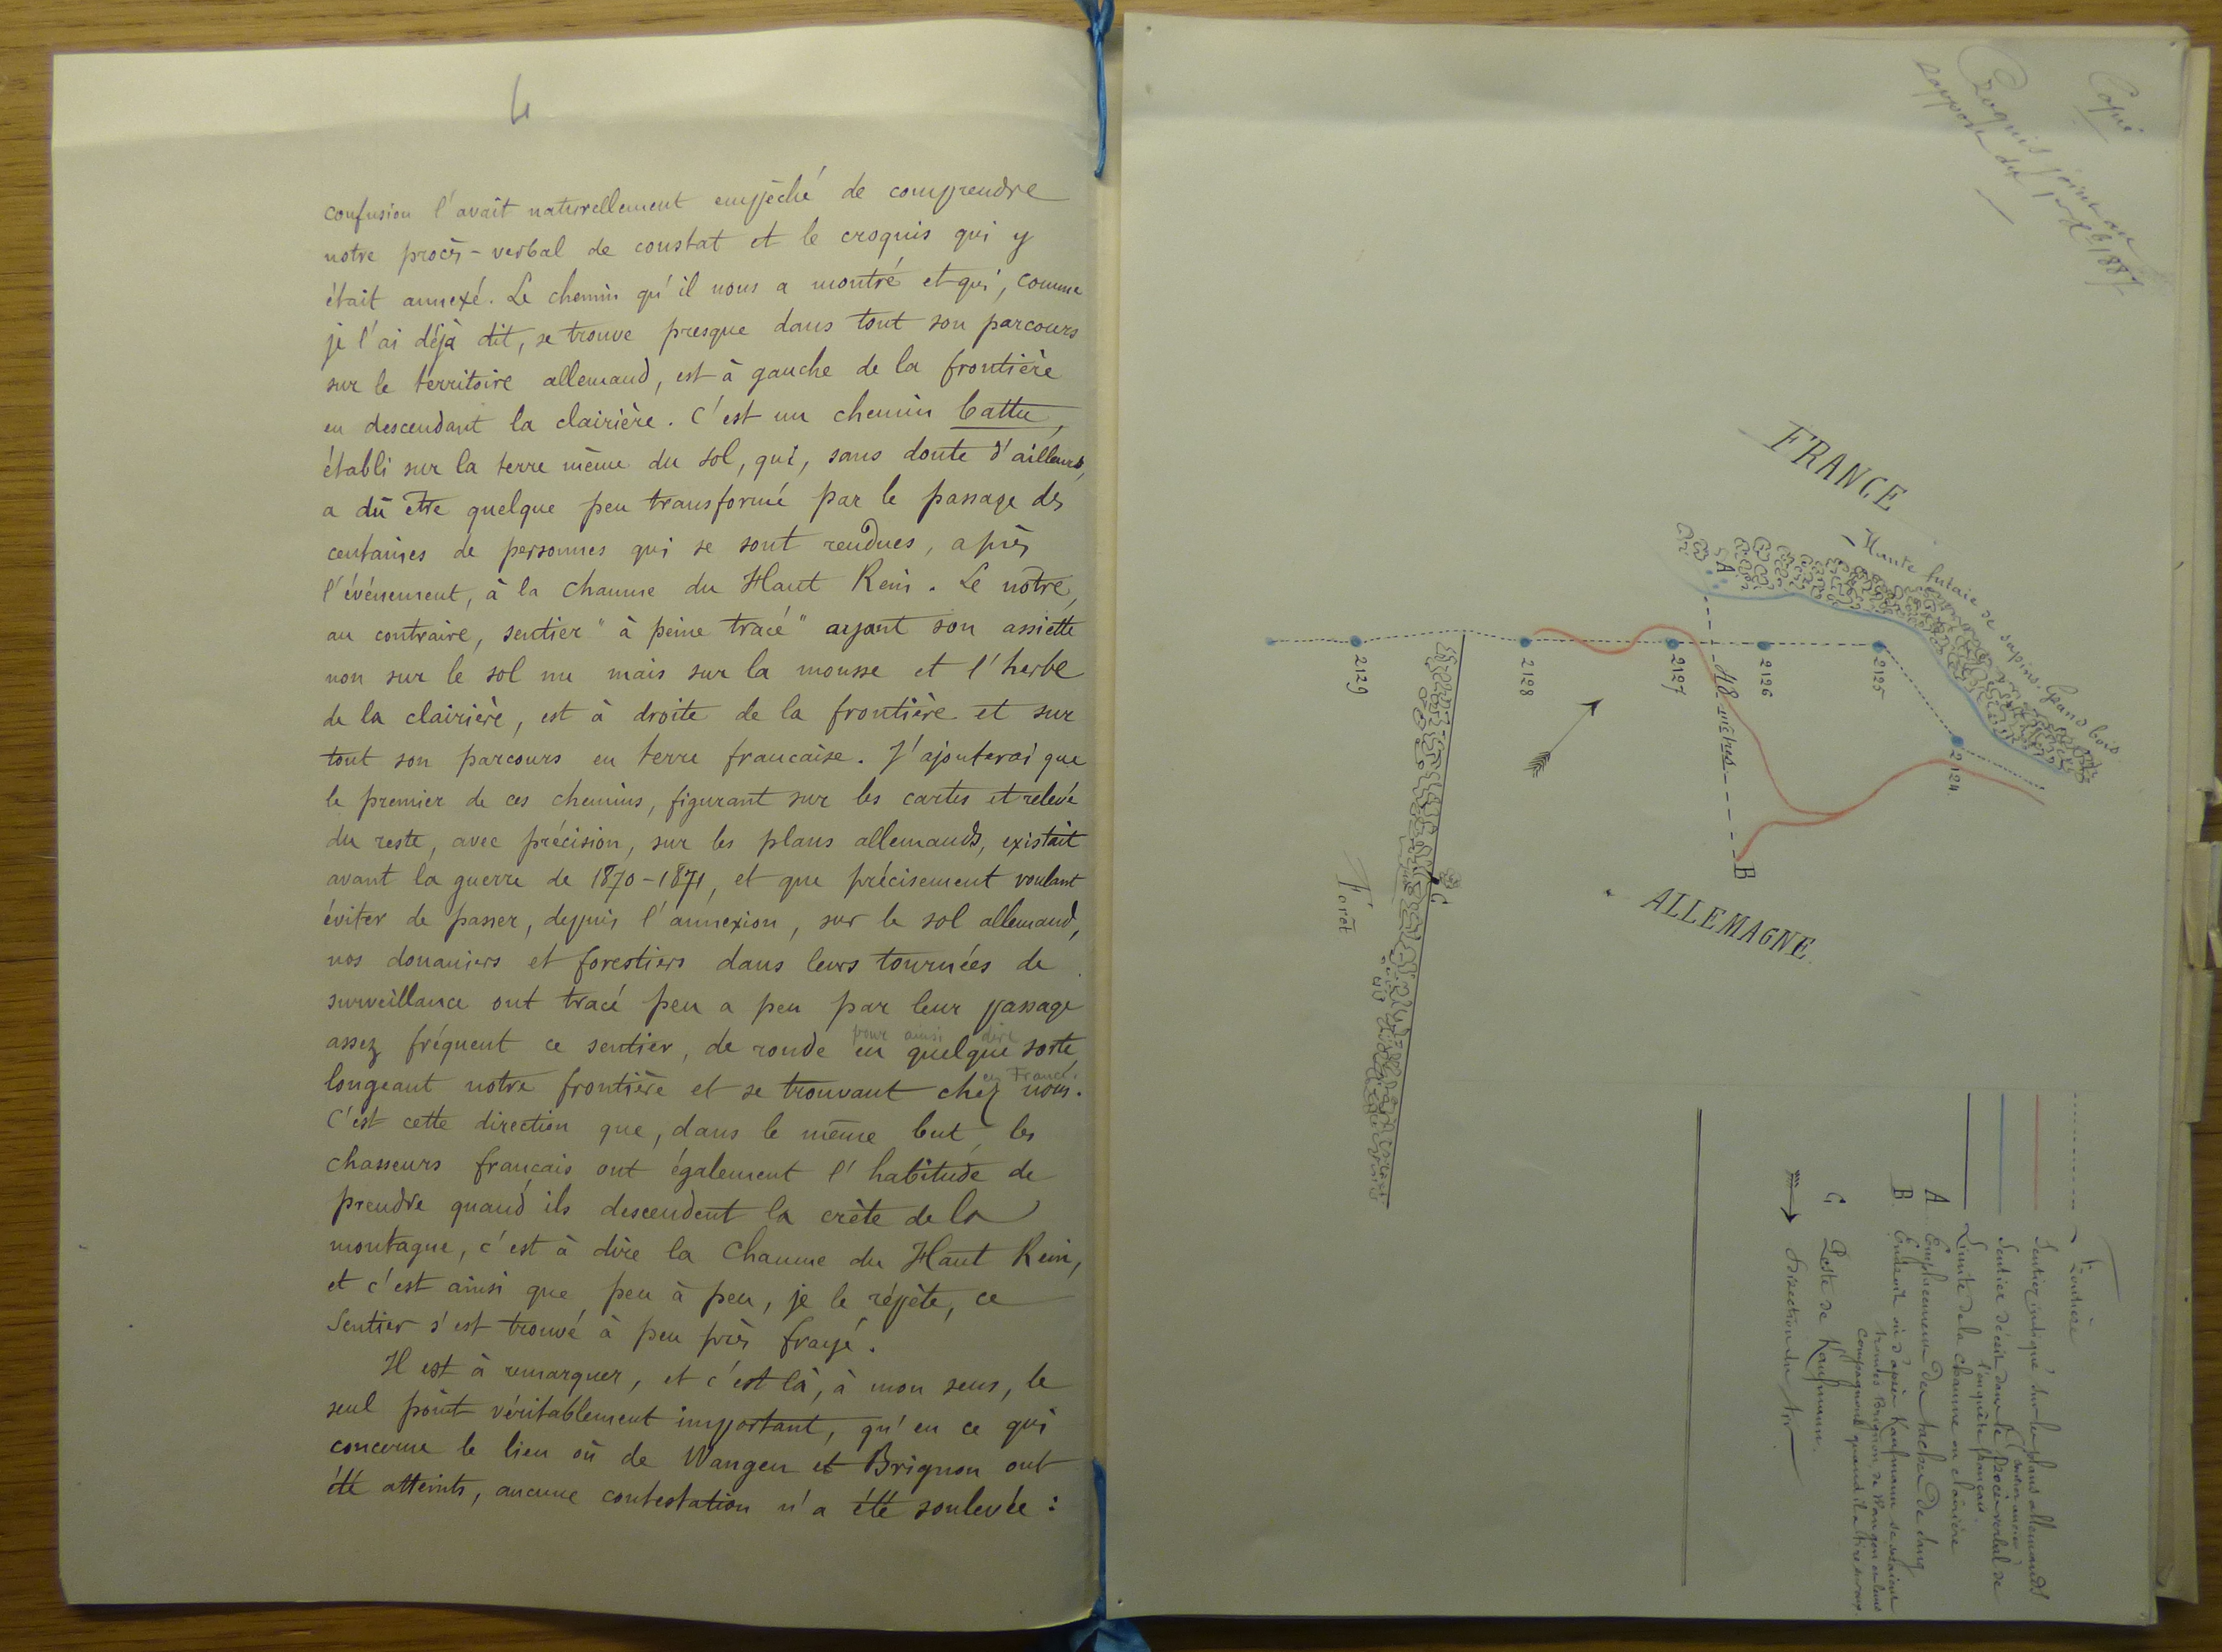 4
confusion l'avait naturellement empêché de comprendre
notre procès-verbal de constat et le croquis qui y
était annexé. Le chemin qu'il nous a montré et qui, comme
je l'ai déjà dit, se trouve presque dans tout son parcours
sur le territoire allemand, est à gauche de la frontière
en descendant la clairière. C'est un chemin battu,
établi sur la terre même du sol, qui, sans doute d'ailleurs,
a dû être quelque peu transformé par le passage des
centaines de personnes qui se sont rendues, après
l'événement, à la chaume du Haut Rein. Le notre,
au contraire, sentier "à peine tracé" ayant son assiette
non sur le sol nu mais sur la mousse et l'herbe
de la clairière, est à droite de la frontière et sur
tout son parcours en terre francaise. J'ajouterai que
le premier de ces chemins, figurant sur les cartes et relevé
du reste, avec précision, sur les plans allemands, existait
avant la guerre de 1870-1871, et que précisement voulant
éviter de passer, depuis l'annexion, sur le sol allemand,
nos douaniers et forestiers dans leurs tournées de
surveillance ont tracé peu a peu par leur passage
pour ainsi dire
assez fréquent ce sentier, de ronde en quelque sorte,
en France.
longeant notre frontière et se trouvant chez nous.
C'est cette direction que, dans le même but, les
chasseurs français ont également l'habitude de
prendre quand ils descendent la crète de la
montagne, c'est à dire la Chaume du Haut Rein,
et c'est ainsi que peu à peu, je le répète, ce
Sentier s'est trouvé à peu près frayé.
Il est à remarquer, et c'est là, à mon sens, le
seul point véritablement important, qu'en ce qui
concerne le lieu où de Wangen et Brignon ont
été atteints, aucune contestation n'a été soulevée :
Copie
Croquis joint au
rapport du
FRANCE
Haute futaie de sapins. Grand bois
A
2129
2128
2127
2126
2125
2124
48 mètres
B
C
Forêt
ALLEMAGNE
Frontière
Sentier indiqué sur les plans allemands
Sentier décrit dans le Procès verbal de
l'enquête français.
Limite de la chaume ou clairière
A Emplacement des taches de sang
B Endroit où d'après Kaufmann se seraient
trouvés Brignon, de Wangen et leurs
compagnons quand il a tiré sur eux
C Poste de Kaufmann.
Direction du tir